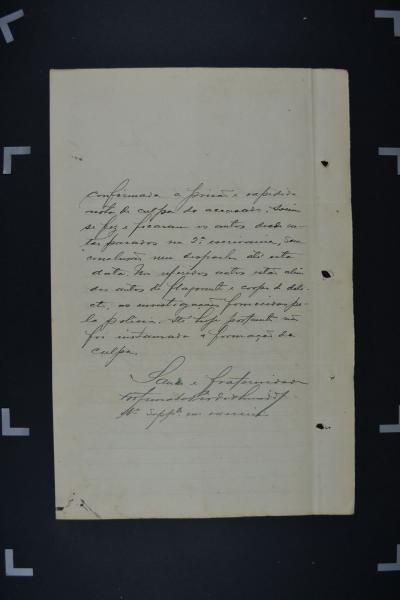 confirmada a prisão e expedida
nota de culpa do accusado. Assim
se fez e ficaram os autos desde en-
tão parados na 2ª escrivania, sem
conclusão nem despacho até esta
data. Nos referidos autos estão alem
dos autos de flagrante e corpo de deli-
cto, as investigações fornecidas pe-
la policia. Até hoje portanto não
foi instaurada a formação da
culpa.
Saude e fraternidade
supp.te em exercicio